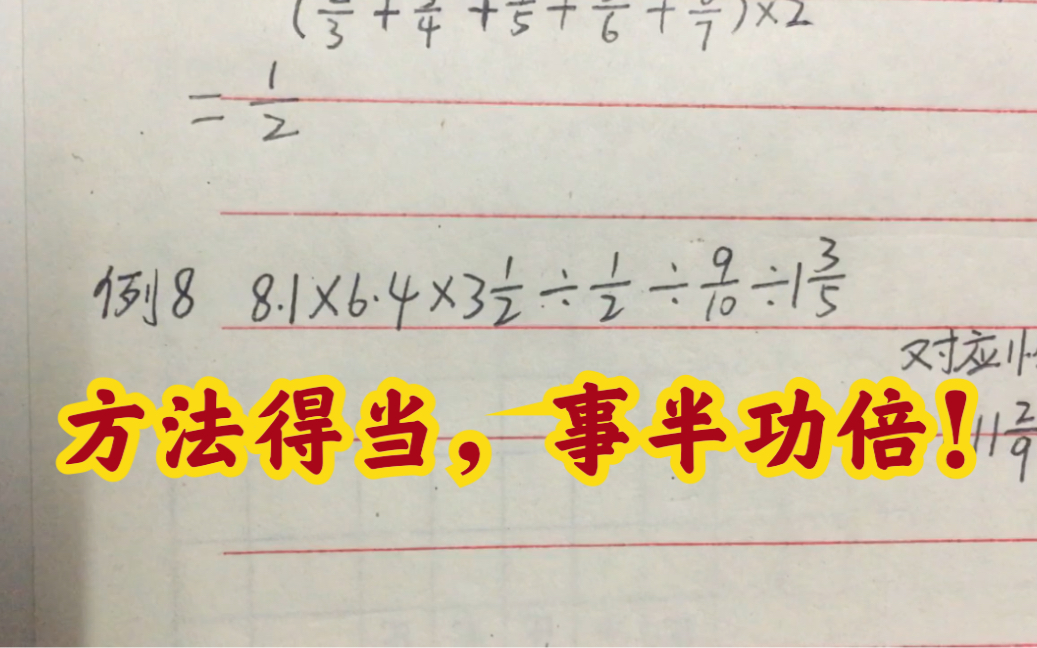 + + + + )×2
3 4 5 6 7
= 1/2
例8 8.1×6.4×3 1/2÷1/2÷9/10÷1 3/5
对应
方法得当,事半功倍!
11 2/9